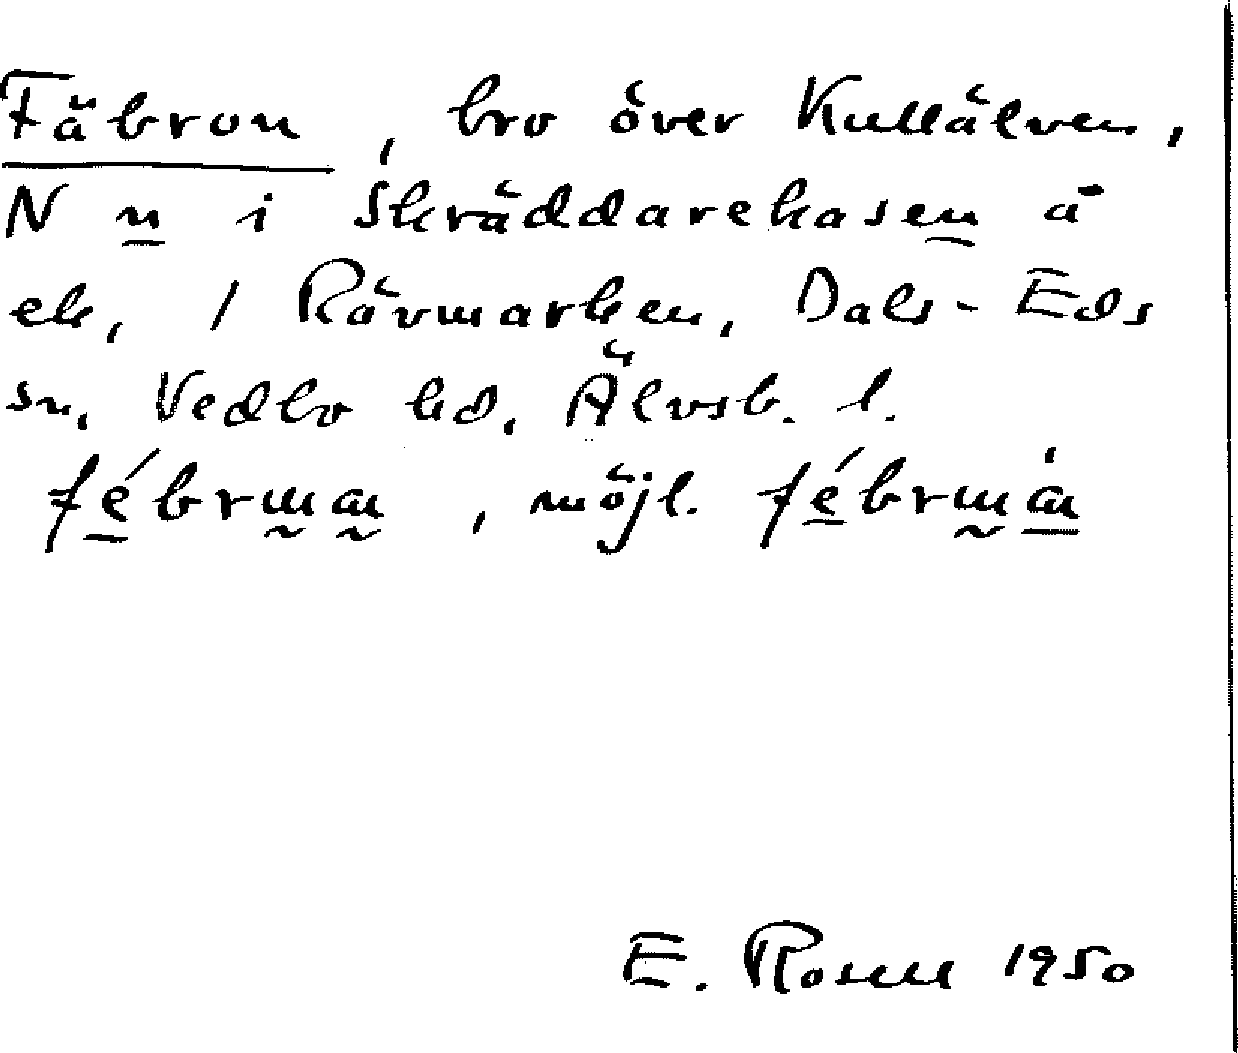 Fäbron, bro över Kullälven,
N n i Skräddarekasen å
ek, 1 Rävmarken, Dals-Eds
sn, Vedbo hd, Älvsb. l.
fébrɯɑ, möjl. fébrɯɑ̀
E. Rosell 1950